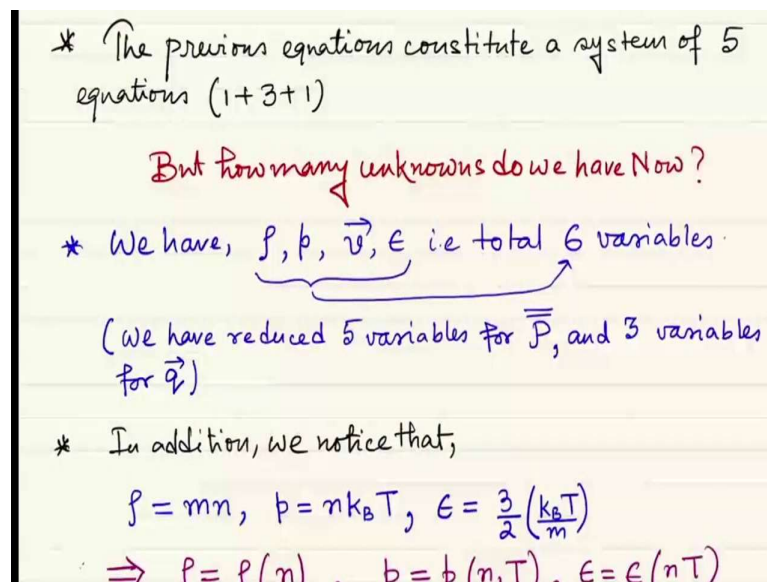 * The previous equations constitute a system of 5
equations (1+3+1)
But how many unknowns do we have Now?
* We have, ρ, p, v⃗, ϵ i.e total 6 variables.
(we have reduced 5 variables for P̿, and 3 variables
for q⃗)
* In addition, we notice that,
ρ = mn, p = nk_BT, ϵ = 3/2 (k_BT/m)
⇒ ρ = ρ(n), p = p(n,T), ϵ = ϵ(nT)